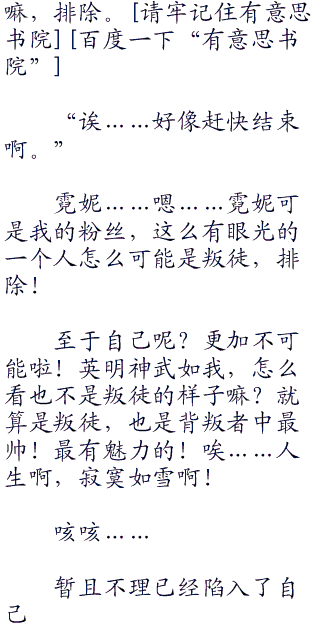 嘛，排除。[请牢记住有意思
书院][百度一下“有意思书
院”]
“诶……好像赶快结束
啊。”
霓妮……嗯……霓妮可
是我的粉丝，这么有眼光的
一个人怎么可能是叛徒，排
除！
至于自己呢？更加不可
能啦！英明神武如我，怎么
看也不是叛徒的样子嘛？就
算是叛徒，也是背叛者中最
帅！最有魅力的！唉……人
生啊，寂寞如雪啊！
咳咳……
暂且不理已经陷入了自
己